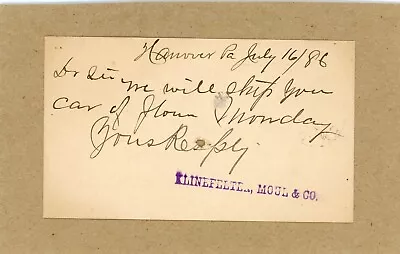 Hanover Pa July 16/86
Dr Sir we will ship you
car of flour Monday
Yours Respfly
KLINEFELTER, MOUL & CO.